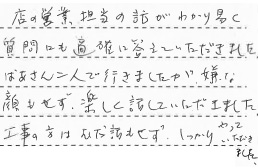 店の営業担当の話がわかり易く
質問にも適確に答えていただきました
ばあさん二人で行きましたが、嫌な
顔もせず、楽しく話していただきました。
工事の方はむだ話もせず、しっかりやって
いただき
ました。